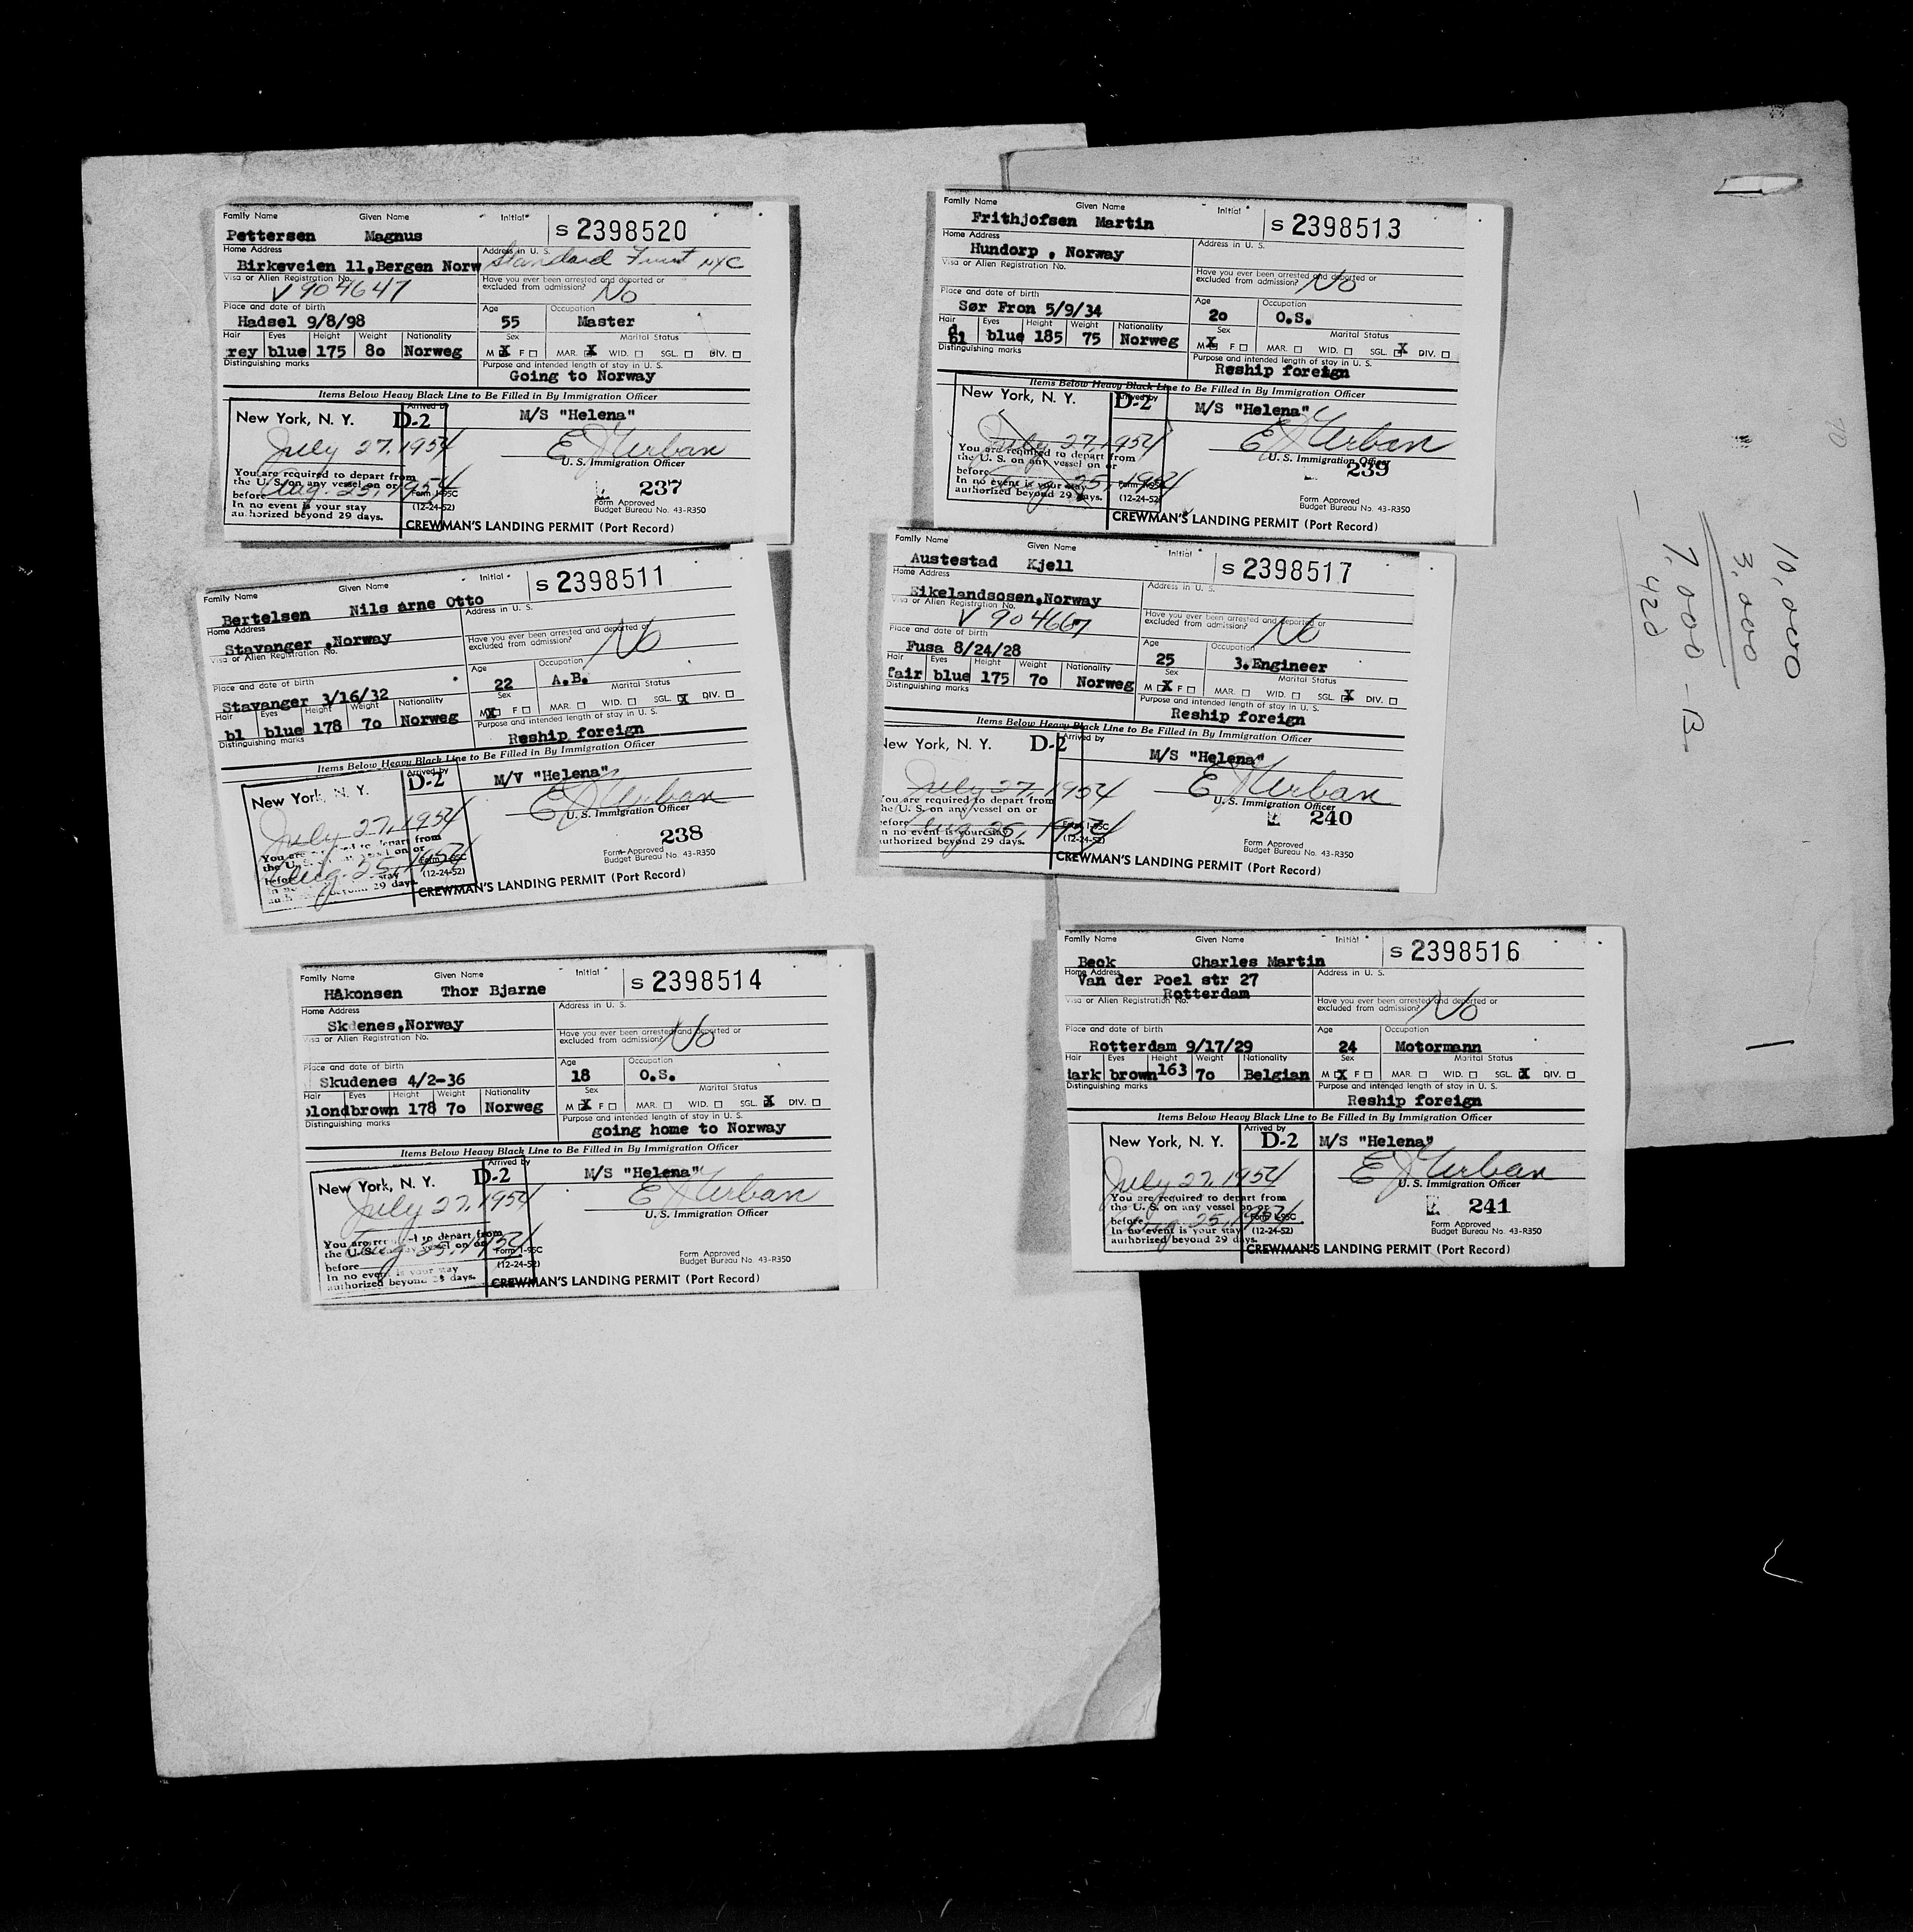 Family Name Given Name Initial S 2398520
Pettersen Magnus
Home Address Address in U. S.
Birkeveien 11,Bergen Norw Standard Fruit NYC
Visa or Alien Registration No. Have you ever been arrested and deported or
V 904647 excluded from admission? No
Place and date of birth Age Occupation
Hadsel 9/8/98 55 Master
Hair Eyes Height Weight Nationality Sex Marital Status
rey blue 175 80 Norweg M X F MAR. X WID. SGL. DIV.
Distinguishing marks Purpose and intended length of stay in U. S.
Going to Norway
Items Below Heavy Black Line to Be Filled in By Immigration Officer
New York, N. Y. D-2 Arrived by M/S "Helena"
July 27, 1954 E J Urban
You are required to depart from U. S. Immigration Officer
the U. S. on any vessel on or
before Aug. 25, 1954 Form I-95C 237
In no event is your stay (12-24-52) Form Approved
authorized beyond 29 days. Budget Bureau No. 43-R350
CREWMAN'S LANDING PERMIT (Port Record)
Family Name Given Name Initial S 2398513
Frithjofsen Martin
Home Address Address in U. S.
Hundorp , Norway
Visa or Alien Registration No. Have you ever been arrested and deported or
excluded from admission? No
Place and date of birth Age Occupation
Sør Fron 5/9/34 20 O.S.
Hair Eyes Height Weight Nationality Sex Marital Status
d bl blue 185 75 Norweg M X F MAR. WID. SGL. X DIV.
Distinguishing marks Purpose and intended length of stay in U. S.
Reship foreign
Items Below Heavy Black Line to Be Filled in By Immigration Officer
New York, N. Y. D-2 Arrived by M/S "Helena"
July 27, 1954 E J Urban
You are required to depart from U. S. Immigration Officer
the U. S. on any vessel on or 239
before 25, 1954 Form I-95C
In no event is your stay (12-24-52) Form Approved
authorized beyond 29 days. Budget Bureau No. 43-R350
CREWMAN'S LANDING PERMIT (Port Record)
Family Name Given Name Initial S 2398511
Bertelsen Nils Arne Otto
Home Address Address in U. S.
Stavanger ,Norway
Visa or Alien Registration No. Have you ever been arrested and deported or
excluded from admission? No
Place and date of birth Age Occupation
Stavanger 3/16/32 22 A.B.
Hair Eyes Height Weight Nationality Sex Marital Status
bl blue 178 70 Norweg M X F MAR. WID. SGL. X DIV.
Distinguishing marks Purpose and intended length of stay in U. S.
Reship foreign
Items Below Heavy Black Line to Be Filled in By Immigration Officer
New York, N. Y. D-2 Arrived by M/V "Helena"
July 27, 1954 E J Urban
You are required to depart from U. S. Immigration Officer
the U. S. vessel on or
before Aug. 25, 1954 Form I-95C 238
stay (12-24-52) Form Approved
beyond 29 days. Budget Bureau No. 43-R350
CREWMAN'S LANDING PERMIT (Port Record)
Family Name Given Name Initial S 2398517
Austestad Kjell
Home Address Address in U. S.
Eikelandsosen,Norway
Visa or Alien Registration No. Have you ever been arrested and deported or
V 904667 excluded from admission? No
Place and date of birth Age Occupation
Fusa 8/24/28 25 3.Engineer
Hair Eyes Height Weight Nationality Sex Marital Status
fair blue 175 70 Norweg M X F MAR. WID. SGL. X DIV.
Distinguishing marks Purpose and intended length of stay in U. S.
Reship foreign
Items Below Heavy Black Line to Be Filled in By Immigration Officer
New York, N. Y. D-2 Arrived by M/S "Helena"
July 27, 1954 E J Urban
You are required to depart from U. S. Immigration Officer
the U. S. on any vessel on or 240
before Aug 25, 1954 Form I-95C
In no event is your stay (12-24-52) Form Approved
authorized beyond 29 days. Budget Bureau No. 43-R350
CREWMAN'S LANDING PERMIT (Port Record)
Family Name Given Name Initial S 2398514
Håkonsen Thor Bjarne
Home Address Address in U. S.
Skdenes,Norway
Visa or Alien Registration No. Have you ever been arrested and deported or
excluded from admission? No
Place and date of birth Age Occupation
Skudenes 4/2-36 18 O.S.
Hair Eyes Height Weight Nationality Sex Marital Status
blond brown 178 70 Norweg M X F MAR. WID. SGL. X DIV.
Distinguishing marks Purpose and intended length of stay in U. S.
going home to Norway
Items Below Heavy Black Line to Be Filled in By Immigration Officer
New York, N. Y. D-2 Arrived by M/S "Helena"
July 27, 1954 E J Urban
U. S. Immigration Officer
You are required to depart from
the U. S. vessel on or
before Aug 25, 1954 Form I-95C
In no event is your stay (12-24-52) Form Approved
authorized beyond 29 days. Budget Bureau No. 43-R350
CREWMAN'S LANDING PERMIT (Port Record)
Family Name Given Name Initial S 2398516
Beck Charles Martin
Home Address Address in U. S.
Van der Poel str 27
Rotterdam
Visa or Alien Registration No. Have you ever been arrested and deported or
excluded from admission? No
Place and date of birth Age Occupation
Rotterdam 9/17/29 24 Motormann
Hair Eyes Height Weight Nationality Sex Marital Status
dark brown 163 70 Belgian M X F MAR. WID. SGL. X DIV.
Distinguishing marks Purpose and intended length of stay in U. S.
Reship foreign
Items Below Heavy Black Line to Be Filled in By Immigration Officer
New York, N. Y. D-2 Arrived by M/S "Helena"
July 27, 1954 E J Urban
You are required to depart from U. S. Immigration Officer
the U. S. on any vessel on or
before Aug. 25, 1954 Form I-95C 241
In no event is your stay (12-24-52) Form Approved
authorized beyond 29 days. Budget Bureau No. 43-R350
CREWMAN'S LANDING PERMIT (Port Record)
10,000
3,000
7,000 - B
420
70